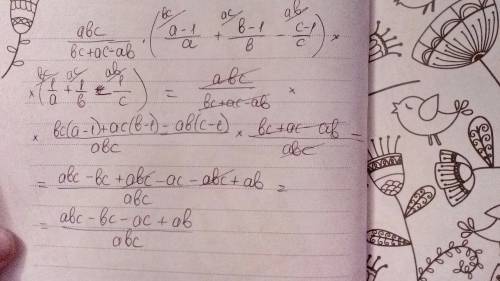 abc/(bc+ac-ab) · ( (a-1)/a + (b-1)/b - (c-1)/c ) ×
bc ac ab
× ( 1/a + 1/b - 1/c ) = abc/(bc+ac-ab) ×
bc ac ab
× (bc(a-1)+ac(b-1)-ab(c-1))/abc × (bc+ac-ab)/abc =
= (abc-bc+abc-ac-abc+ab)/abc =
= (abc-bc-ac+ab)/abc